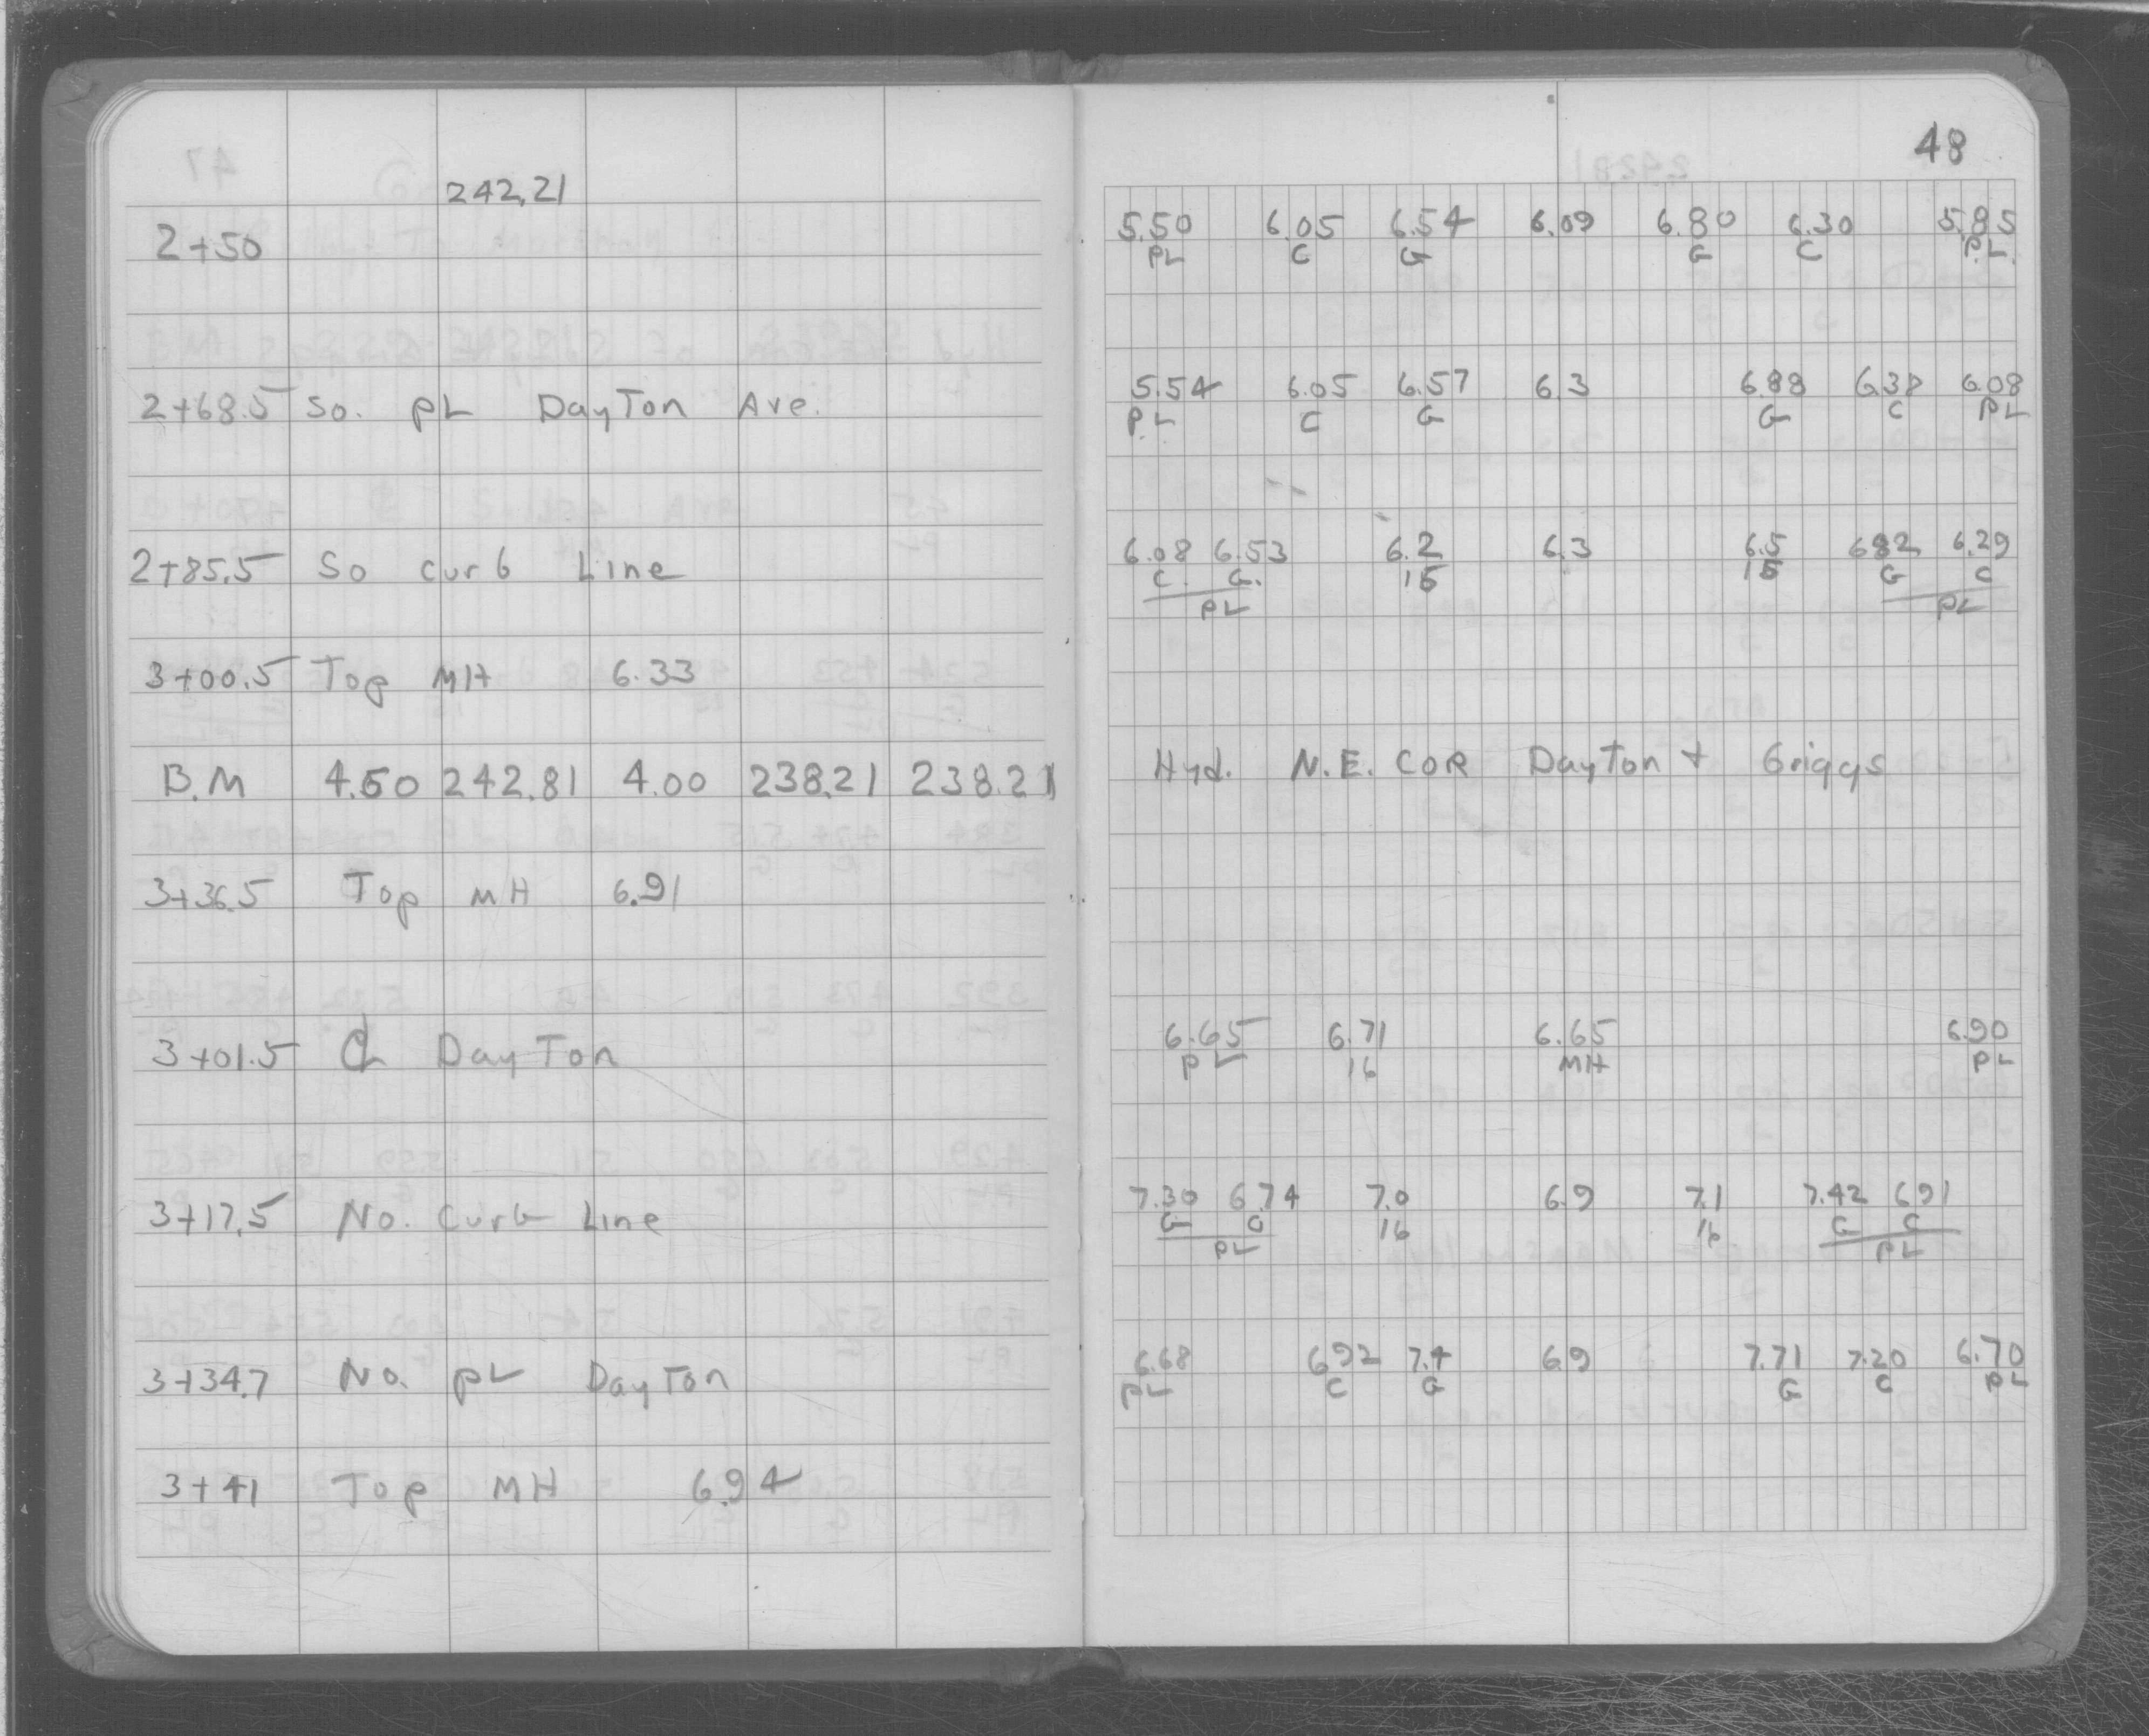 242.21
2+50
2+68.5 So. PL Dayton Ave.
2+85.5 So curb Line
3+00.5 Top MH 6.33
B.M 4.60 242.81 4.00 238.21 238.21
3+36.5 Top MH 6.91
3+01.5 CL Dayton
3+17.5 No. Curb Line
3+34.7 No. PL Dayton
3+41 Top MH 6.94
48
5.50 6.05 6.54 6.09 6.80 6.30 5.85
PL C G G C P.L.
5.54 6.05 6.57 6.3 6.88 6.38 6.08
P.L C G G C PL
6.08 6.53 6.2 6.3 6.5 6.82 6.29
C. G. 15 15 G C
PL PL
Hyd. N.E. COR Dayton + Griggs
6.65 6.71 6.65 6.90
PL 16 MH PL
7.30 6.74 7.0 6.9 7.1 7.42 6.91
G C 16 16 G C
PL PL
6.68 6.92 7.4 6.9 7.71 7.20 6.70
PL C G G C PL